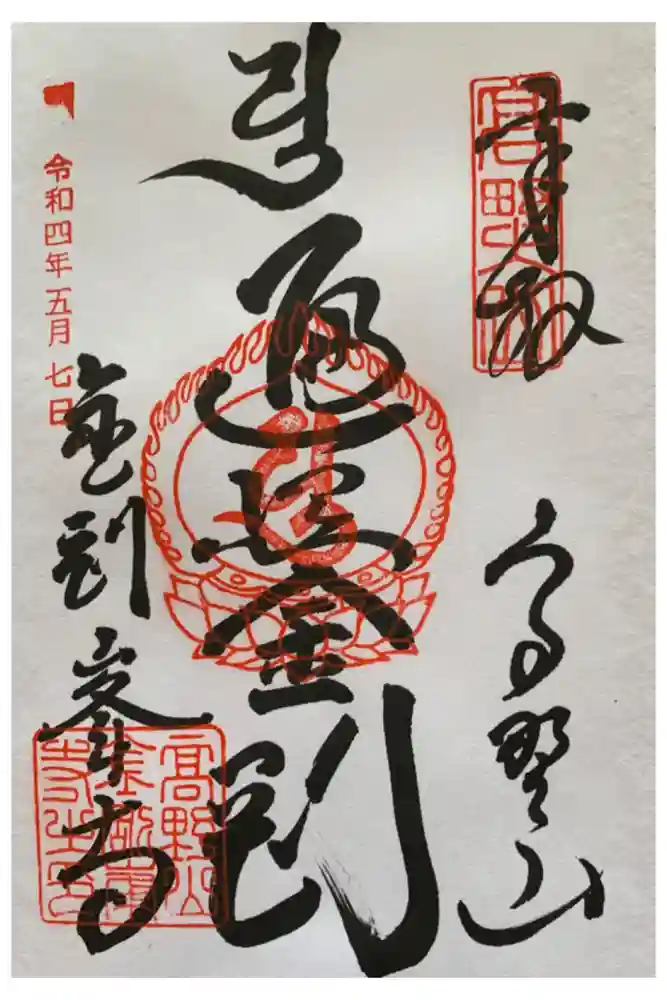 奉拝
高野山
遍照金剛
金剛峯寺
令和四年五月七日
高野山
金剛峯
寺之印